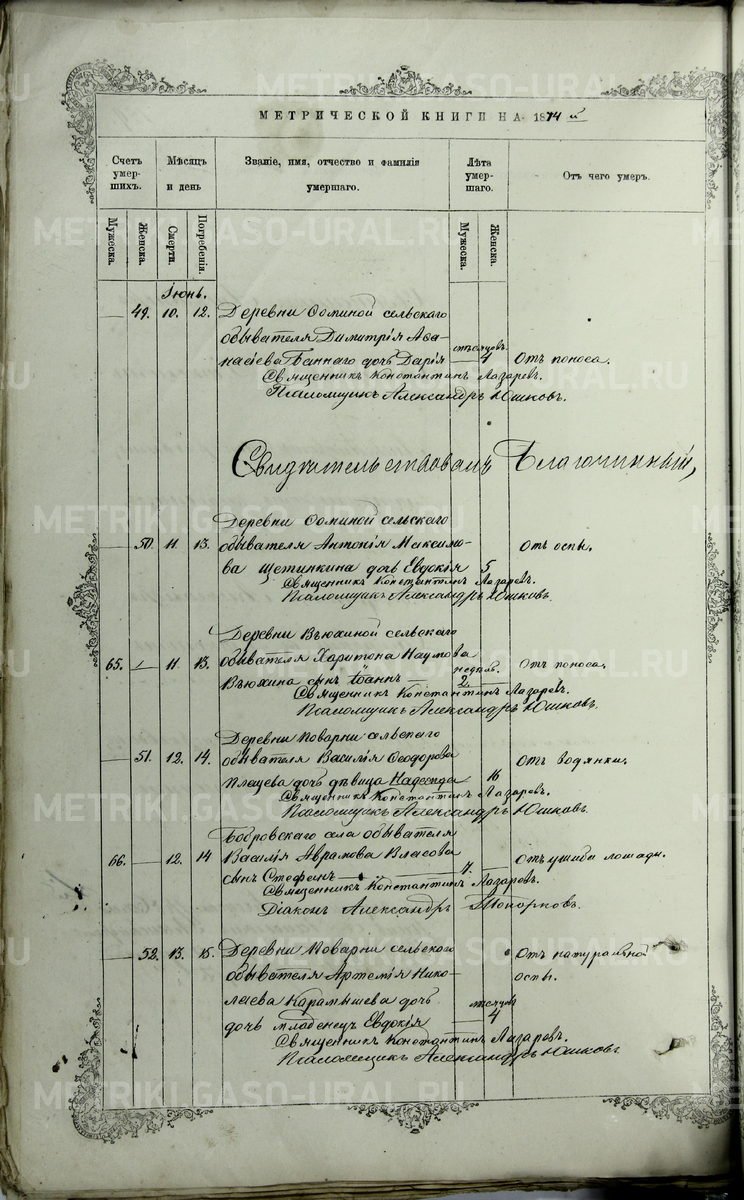 МЕТРИЧЕСКОЙ КНИГИ НА 1874 й
Счетъ умер-шихъ.
Мѣсяцъ и день
Званіе, имя, отчество и фамилія умершаго.
Лѣта умер-шаго.
Отъ чего умеръ.
Мужеска.
Женска.
Смерти.
Погребенія.
Мужеска.
Женска.
Іюнь.
49. 10. 12. Деревни Ѳоминой сельскаго
обывателя Димитрія Аѳа- мѣсяцовъ.
насіева Баннаго дочь Дарія — 4 Отъ поноса.
Священникъ Константинъ Лазаревъ.
Псаломщикъ Александръ Юшковъ.
Свидѣтельствовалъ Благочинный,
Деревни Ѳоминой сельскаго
50. 11. 13. обывателя Антонія Максимо- Отъ оспы.
ва Щетинкина дочь Евдокія 5
Священникъ Константинъ Лазаревъ.
Псаломщикъ Александръ Юшковъ.
Деревни Вьюхиной сельскаго
65. — 11. 13. обывателя Харитона Наумова недѣль. Отъ поноса.
Вьюхина сынъ Іоаннъ — 2. —
Священникъ Константинъ Лазаревъ.
Псаломщикъ Александръ Юшковъ.
Деревни Поварни сельскаго
— 51. 12. 14. обывателя Василія Ѳеодорова Отъ водянки.
Плещева дочь дѣвица Надежда 16
Священникъ Константинъ Лазаревъ.
Псаломщикъ Александръ Юшковъ.
Бобровскаго села обывателя
66. — 12. 14 Василія Аврамова Власова Отъ ушиба лошади.
сынъ Стефанъ — 7. —
Священникъ Константинъ Лазаревъ.
Діаконъ Александръ Топорковъ.
— 52. 13. 15. Деревни Поварни сельскаго Отъ натуральной
обывателя Артемія Нико- оспы.
лаева Карамышева дочь мѣсяцовъ
дочь младенецъ Евдокія — 4
Священникъ Константинъ Лазаревъ.
Псаломщикъ Александръ Юшковъ.
METRIKI.GASO-URAL.RU